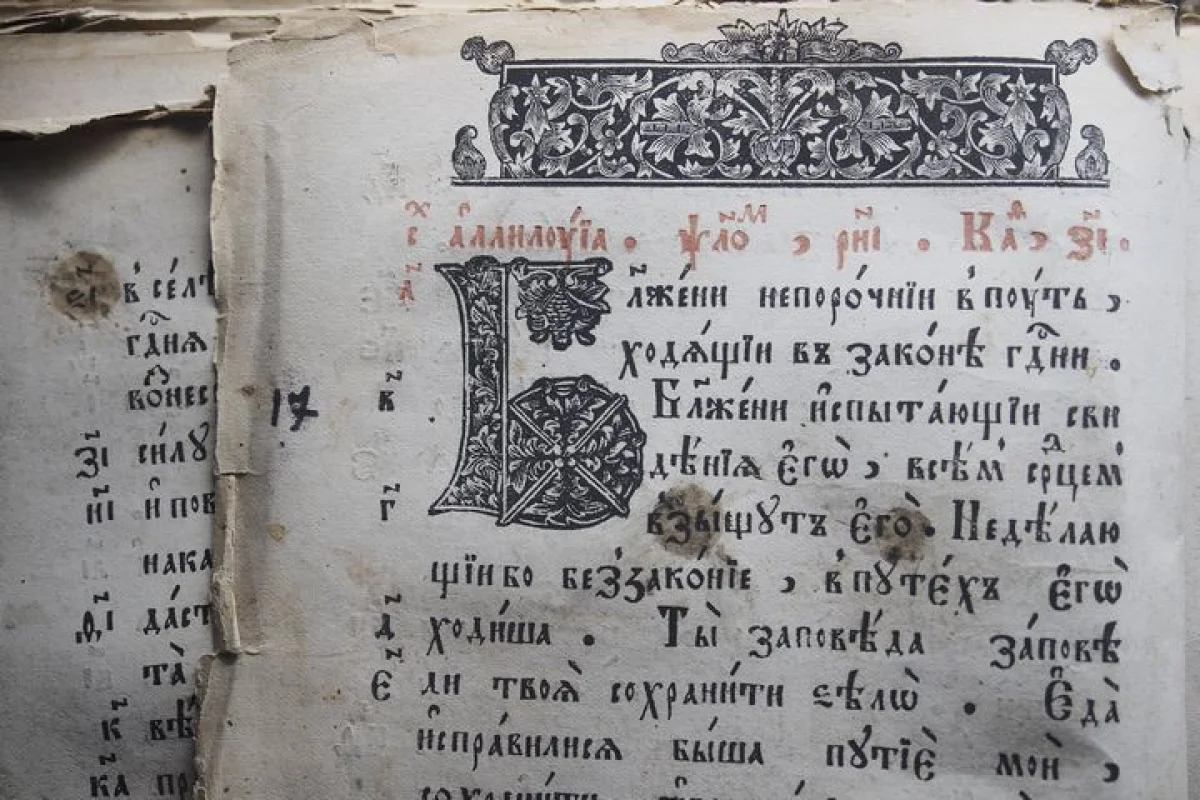 в҃і в̾ се́лѣ
гдⷭ҇нѧ
во̑нес
з҃і си́лꙋ
и҃і и҆ пов
нака
ѳ҃і да́ст
та̀
к҃ вѣ
к҃а пр
сⷯ а҆ллилꙋ́їа . ѱло́ⷨ , ри҃і . Каⷴ , з҃і .
а҃ Бл҃же́ни непоро́чнїи в̾поуть ,
ходѧ́щїи въ зако́нѣ гдⷭ҇ни .
17 в҃ Бл҃же́ни и҆спыта́ющїи сви
дѣ́нїѧ є҆гѡ̀ , всѣ́м̾ срⷣцем̾
г҃ взы́щꙋтъ є҆го̀ . Недѣ́лаю
щїибо беззако́нїе , в̾пꙋте́хъ є҆гѡ̀
д҃ ходи́ша . Ты̀ заповѣ́да за́повѣ
є҃ ди твоѧ̀ сохрани́ти ѕѣлѡ̀ . Є҆да̀
и҆спра́вилисѧ бы́ша пꙋтїѐ мои̾ ,
сохрани́ти